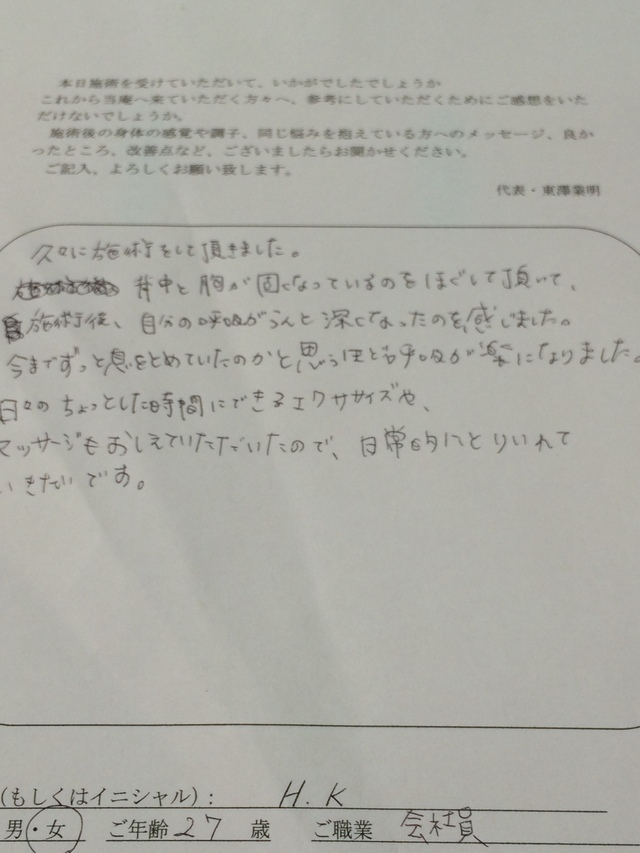 本日施術を受けていただいて、いかがでしたでしょうか
これから当庵へ来ていただく方々へ、参考にしていただくためにご感想をいた
だけないでしょうか。
施術後の身体の感覚や調子、同じ悩みを抱えている方へのメッセージ、良か
ったところ、改善点など、ございましたらお聞かせください。
ご記入、よろしくお願い致します。
代表・東澤業明
久々に施術をして頂きました。
背中と胸が固くなっているのをほぐして頂いて、
施術後、自分の呼吸がうんと深くなったのを感じました。
今までずっと息をとめていたのかと思うほど呼吸が楽になりました。
日々のちょっとした時間にできるエクササイズや、
マッサージもおしえていただいたので、日常的にとりいれて
いきたいです。
(もしくはイニシャル): H.K
男・女 ご年齢 27 歳 ご職業 会社員